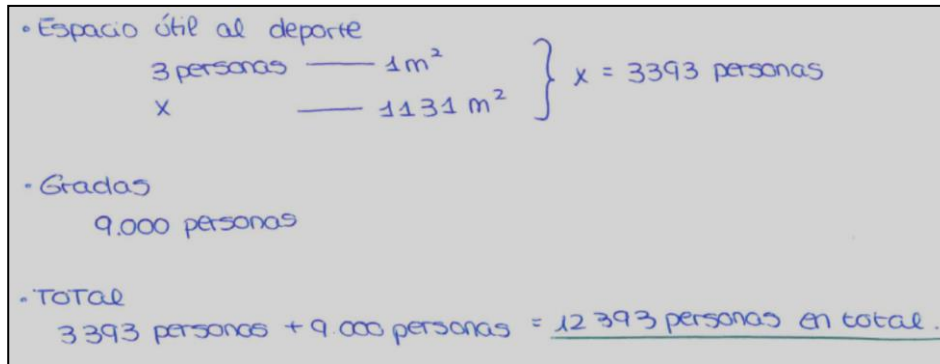 • Espacio útil al deporte
3 personas — 1m² } x = 3393 personas
x — 1131 m²
• Gradas
9.000 personas
• TOTAL
3393 personas + 9.000 personas = 12 393 personas en total.